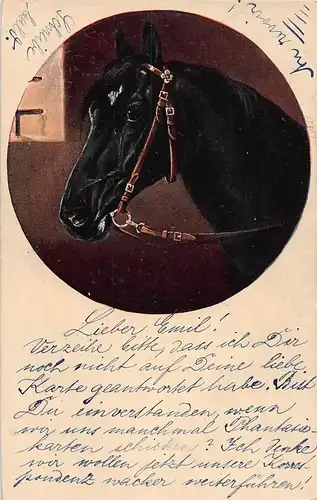 Schreibe
bald!
Lieber Emil!
Verzeihe bitte, dass ich Dir
noch nicht auf Deine liebe
Karte geantwortet habe. Bist
Du einverstanden, wenn
wir uns manchmal Phantasie-
karten schicken? Ich denke,
wir wollen jetzt unsere Korres-
pondenz wacker weiterführen!